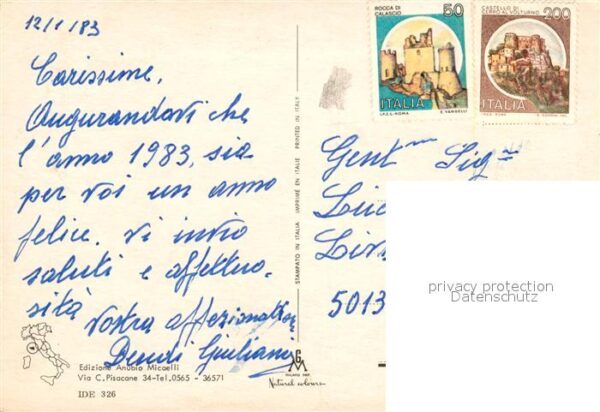 12/1/83
Carissime,
Augurandovi che
l'anno 1983, sia
per voi un anno
felice. vi invio
saluti e affettuo-
sità
Vostra affezionatissima
Giuliani
Edizione Anubio Micaelli
Via C. Pisacane 34-Tel. 0565 - 36571
IDE 326
STAMPATO IN ITALIA IMPRIMÉ EN ITALIE PRINTED IN ITALY
Natural colours
ROCCA DI
CALASCIO
50
ITALIA
I.P.Z.S.-ROMA E. VANGELLI
CASTELLO DI
CERRO AL VOLTURNO
200
ITALIA
Gent.me Sig.re
5013
privacy protection
Datenschutz